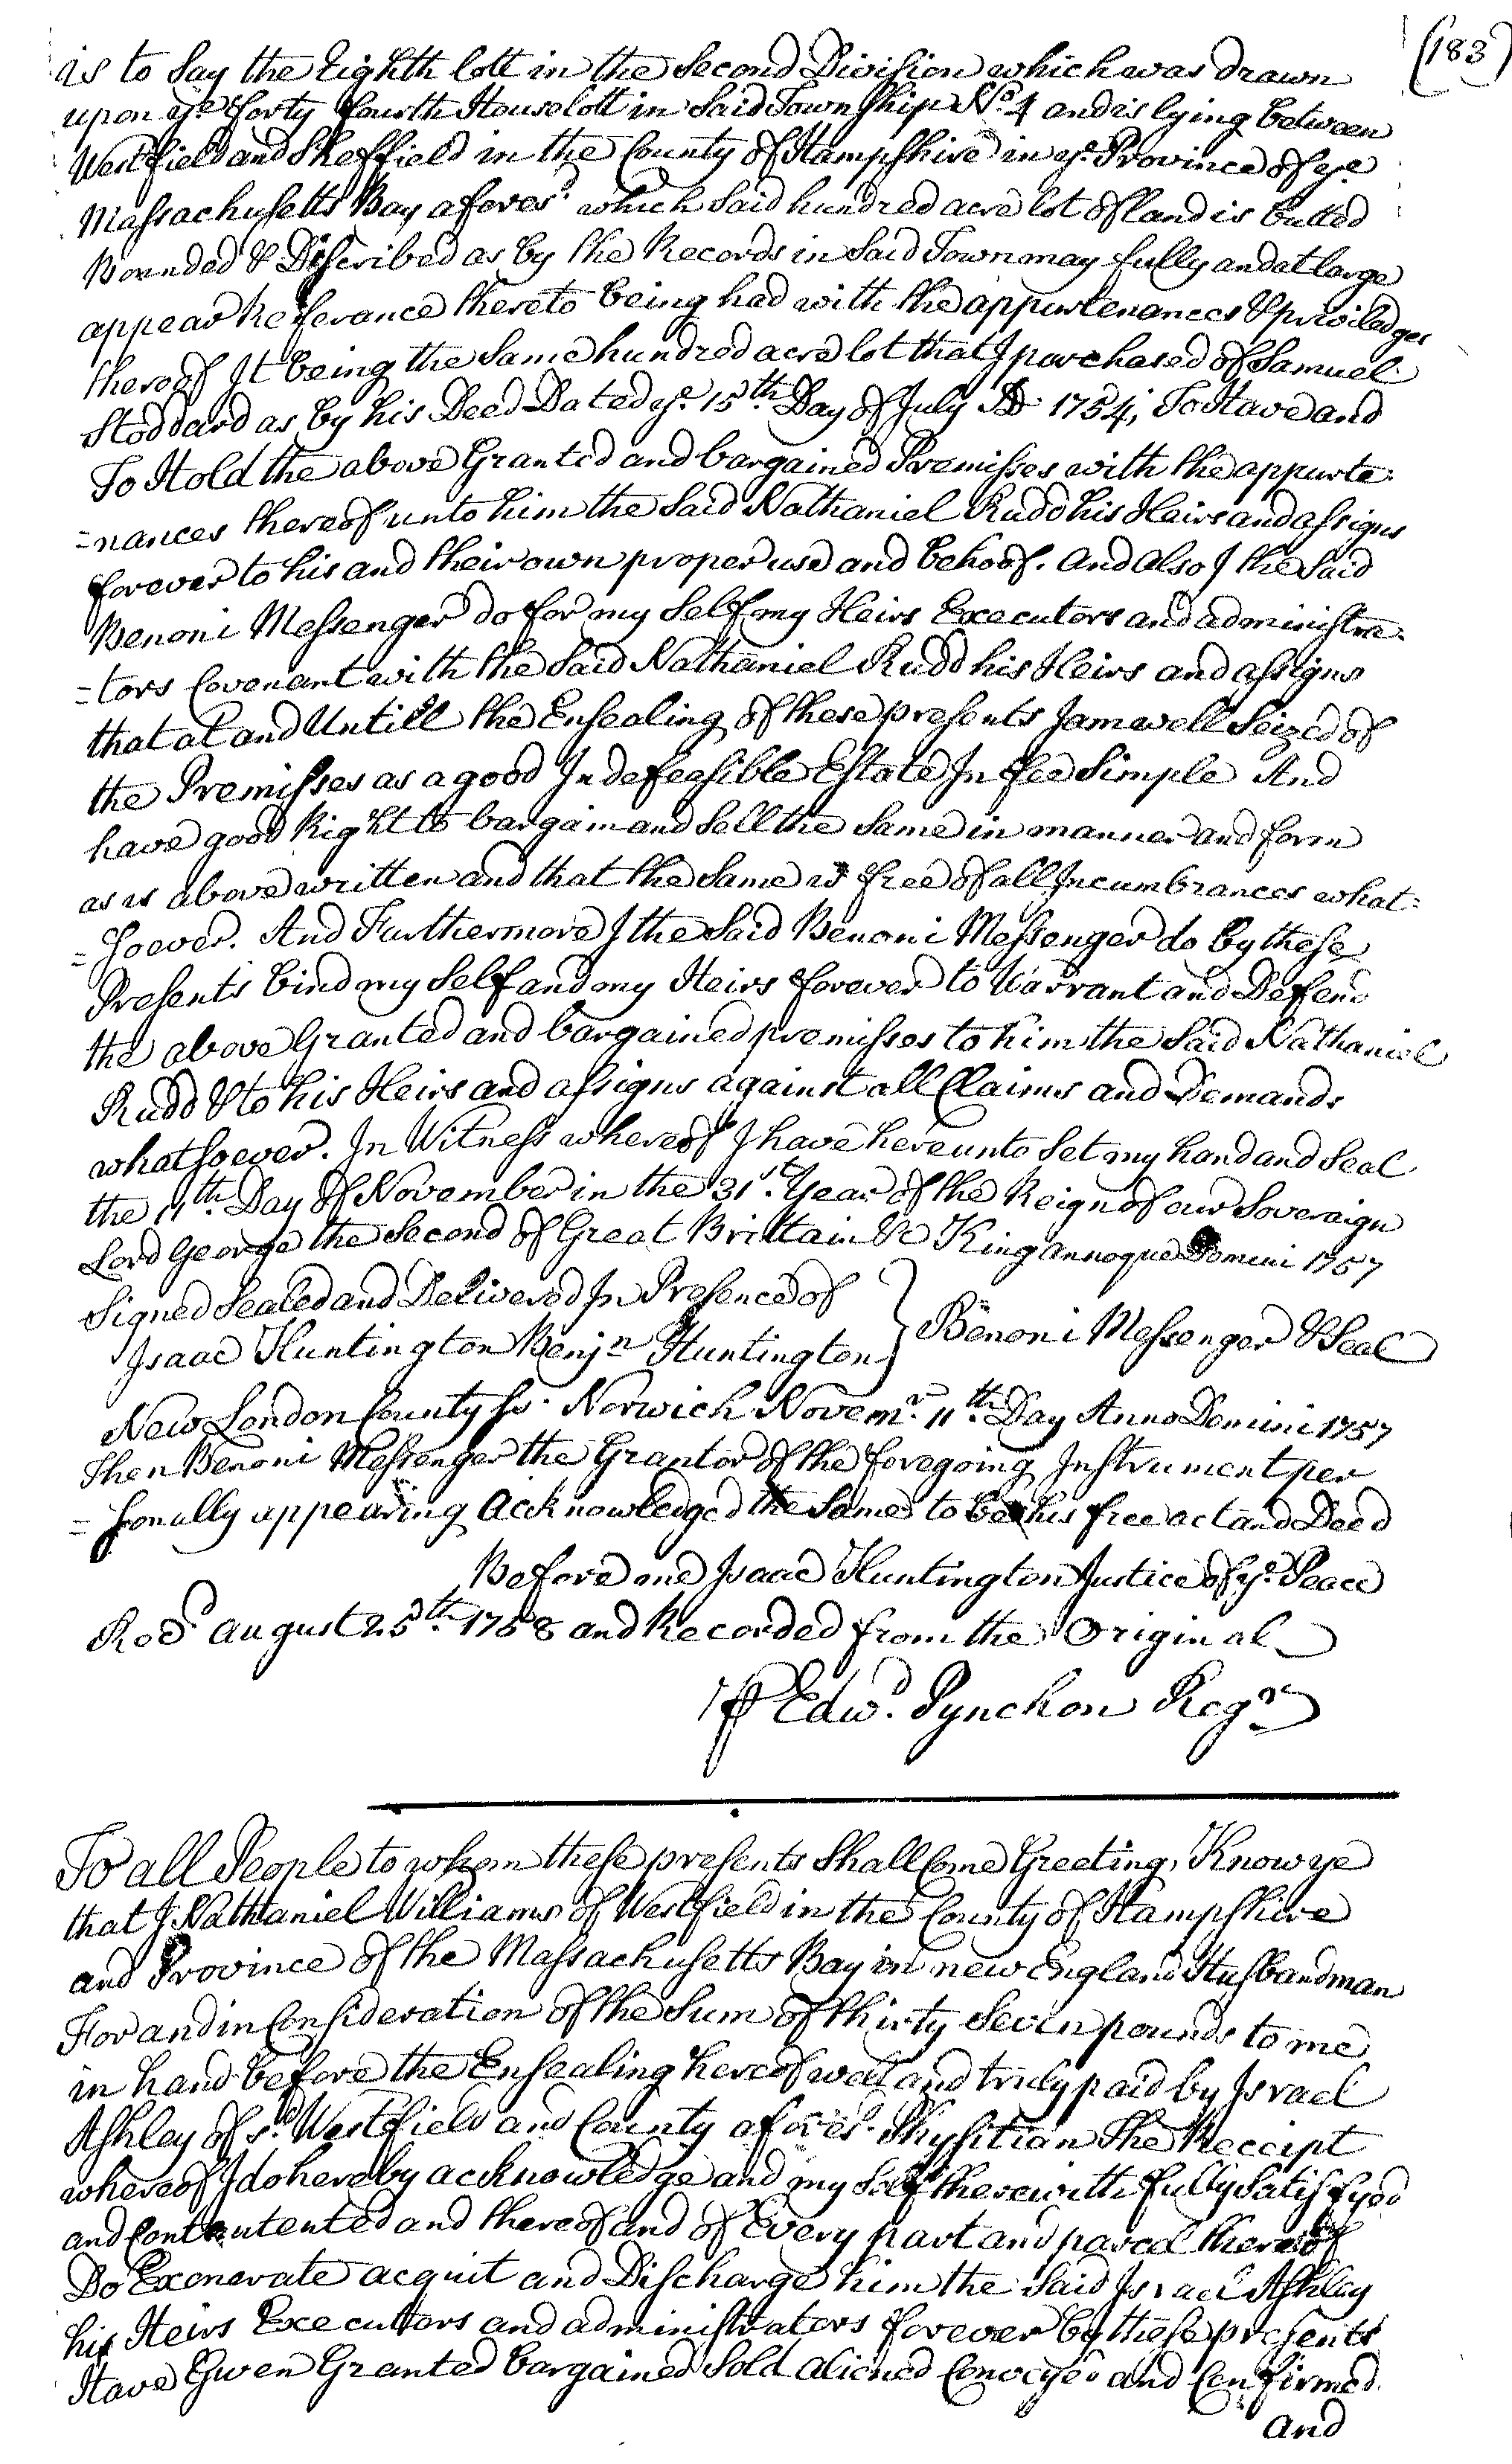 (183)
is to Say the Eighth lott in the Second Division which was drawn
upon ye. forty fourth House lott in Said Township No. 4 and is lying between
Westfield and Sheffield in the County of Hampshire in ye. Province of ye
Massachusetts Bay afores.d which Said hundred acre lot of land is butted
Bounded & Discribed as by the Records in Said Town may fully and at large
appear Referance thereto being had with the appurtenances & priviledges
thereof It being the Same hundred acre lot that I purchased of Samuel
Stoddard as by his Deed Dated ye. 15th. Day of July AD 1754; To Have and
To Hold the above Granted and bargained Premisses with the appurte=
=nances thereof unto him the Said Nathaniel Rudd his Heirs and assigns
forever to his and their own proper use and behoof. And also I the Said
Benoni Messenger do for my Self my Heirs Executors and administra=
=tors Covenant with the Said Nathaniel Rudd his Heirs and assigns
that at and Untill the Ensealing of these presents I am well Seized of
the Premisses as a good Indefeasible Estate In fee Simple And
have good Right to bargain and Sell the Same in manner and form
as is above written and that the Same is free of all Incumbrances what=
=Soever. And Furthermore I the Said Benoni Messenger do by these
Presents bind my Self and my Heirs forever to Warrant and Defend
the above Granted and bargained premisses to him the Said Nathaniel
Rudd & to his Heirs and assigns against all Claims and Demands
whatsoever. In Witness whereof I have hereunto Set my hand and Seal
the 11th. Day of November in the 31st. Year of the Reign of our Soveraign
Lord George the Second of Great Brittain &c King annoque Domini 1757
Signed Sealed and Delivered In Presence of
Isaac Huntington Benjn Huntington } Benoni Messenger & Seal
New London County Ss. Norwich Novemr. 11th. Day Anno Domini 1757
Then Benoni Messenger the Grantor of the foregoing Instrument per
=sonally appearing Acknowledged the Same to be his free act and Deed
Before me Isaac Huntington Justice of ye. Peace
Recd. August 25th. 1758 and Recorded from the Original
P Edwd. Pynchon Regr
To all People to whom these presents Shall Come Greeting, Know ye
that I Nathaniel Williams of Westfield in the County of Hampshire
and Province of the Massachusetts Bay in new England Husbandman
For and in Consideration of the Sum of thirty Seven pounds to me
in hand before the Ensealing hereof well and truly paid by Israel
Ashley of sd. Westfield and County afores.d Physitian The Receipt
whereof I do hereby acknowledge and my Self therewith fully Satisfyed
and Contentented and thereof and of Every part and parcel thereof
Do Exonerate acquit and Discharge him the Said Israel Ashley
his Heirs Executors and administrators forever by these presents
Have Given Granted bargained Sold aliened Conveyed and Confirmed.
and